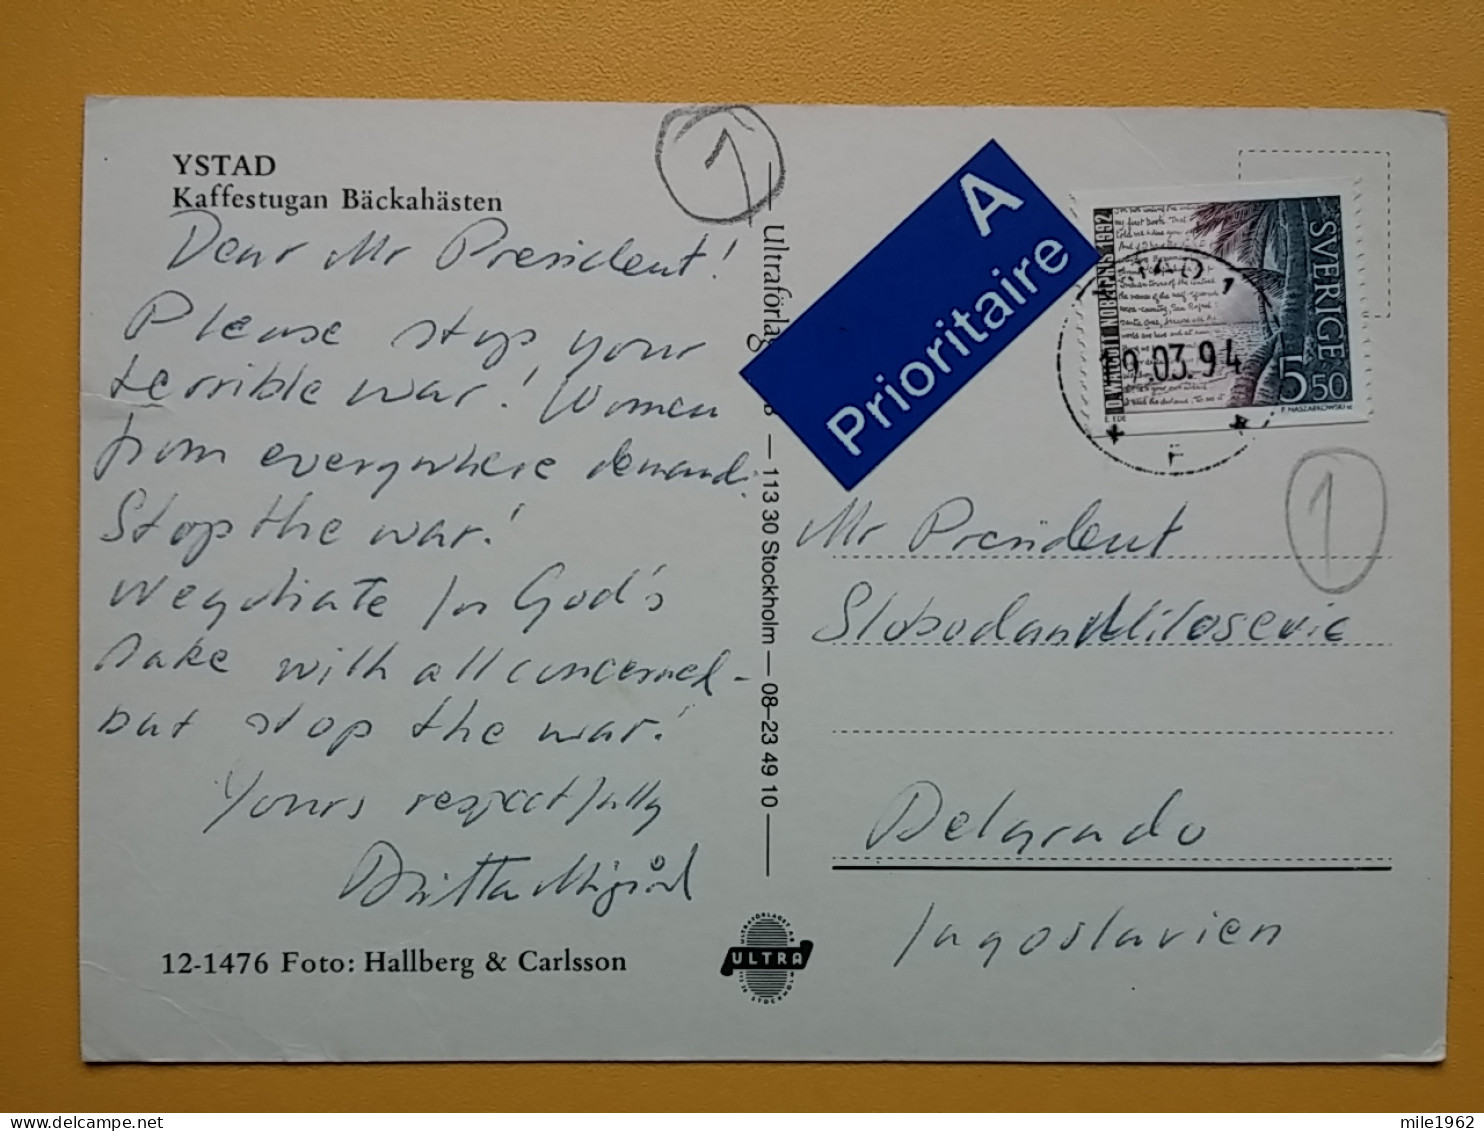 YSTAD
Kaffestugan Bäckahästen
Dear Mr President!
Please stop your
terrible war! Women
from everywhere demand.
Stop the war!
Negotiate for God's
sake with all concerned -
but stop the war!
Yours respectfully
Britta
12-1476 Foto: Hallberg & Carlsson
1
Ultraförlag — 113 30 Stockholm — 08-23 49 10
ULTRA
A
Prioritaire
D. WALCOTT NOBELPRIS 1992
SVERIGE
5 50
19.03.94
1
Mr President
Slobodan Milosevic
Belgrado
Jugoslavien
mile1962